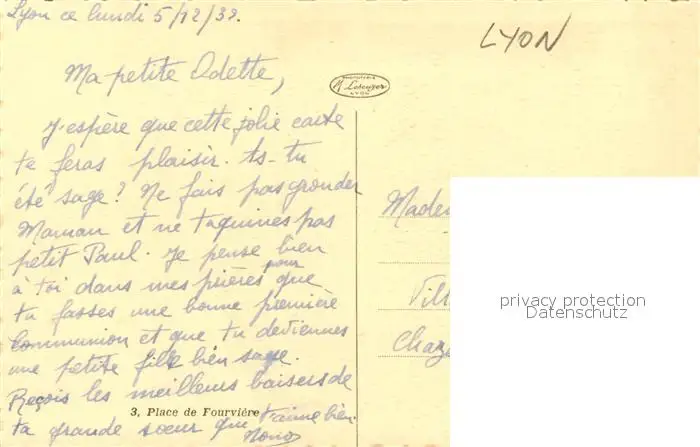 Lyon ce lundi 5/12/38.
LYON
Ma petite Odette,
J'espère que cette jolie carte
te feras plaisir. As-tu
été sage? Ne fais pas gronder
Maman et ne taquines pas
petit Paul. Je pense bien
à toi dans mes prières pour que
tu fasses une bonne première
communion et que tu deviennes
une petite fille bien sage.
Reçois les meilleurs baisers de
ta grande sœur que t'aime bien.
3, Place de Fourvière
LYON
privacy protection
Datenschutz